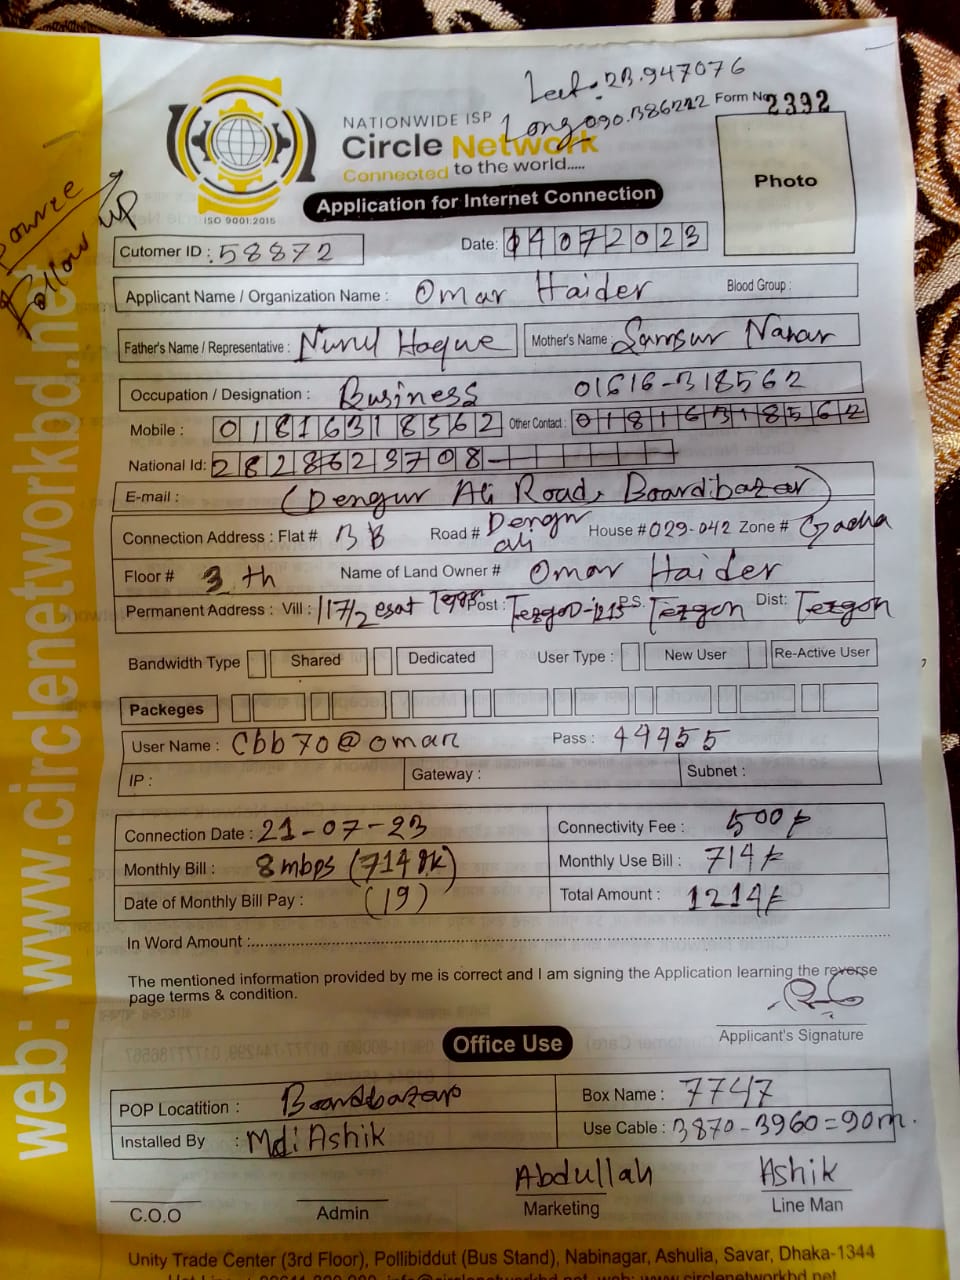 Leet: 23.947076
Long 090.386222 Form No 2392
NATIONWIDE ISP
Circle Network
Connected to the world.....
ISO 9001:2015
Application for Internet Connection
Photo
Source
Follow up
web: www.circlenetworkbd.net
Cutomer ID : 58872
Date: 04072023
Applicant Name / Organization Name : Omar Haider Blood Group :
Father's Name / Representative : Nurul Haque Mother's Name Samsur Nahar
Occupation / Designation : Business 01616-318562
Mobile : 01816318562 Other Contact : 01816318562
National Id: 2828623708-
E-mail : (Dengur Ali Road, Boardibazar)
Connection Address : Flat # 3B Road # Dengur ali House # 029-042 Zone # Gacha
Floor # 3 th Name of Land Owner # Omar Haider
Permanent Address : Vill : 117/2 esat Post : P.S. Tezgon Dist: Tezgon
Bandwidth Type Shared Dedicated User Type : New User Re-Active User
Packeges
User Name : Cbb70@omar Pass : 44955
IP : Gateway : Subnet :
Connection Date : 21-07-23 Connectivity Fee : 500/-
Monthly Bill : 8mbps (714 tk) Monthly Use Bill : 714/-
Date of Monthly Bill Pay : (19) Total Amount : 1214/-
In Word Amount :
The mentioned information provided by me is correct and I am signing the Application learning the reverse
page terms & condition.
Applicant's Signature
Office Use
POP Locatition : Boardbazar Box Name : 7747
Installed By : Mdi Ashik Use Cable : 3870-3960=90m.
Abdullah Ashik
C.O.O Admin Marketing Line Man
Unity Trade Center (3rd Floor), Pollibiddut (Bus Stand), Nabinagar, Ashulia, Savar, Dhaka-1344